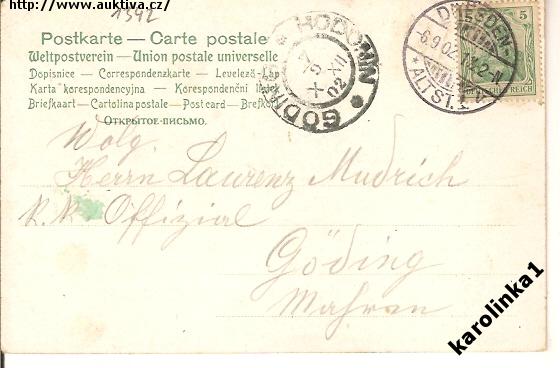 http://www.auktiva.cz/
1342
Postkarte — Carte postale
Weltpostverein — Union postale universelle
Dopisnice — Correspondenzkarte — Levelező-Lap
Karta korespondencyjna — Korespondenční lístek
Briefkaart — Cartolina postale — Post card — Brefkort
ОТКРЫТОЕ-ПИСЬМО.
GÖDING * HODONÍN *
XII
02
DRESDEN-
6.9.02. 11-12-N.
* ALTST. 1
5
DEUTSCHES REICH
Wolg.
Herrn Laurenz Mudrich
k.k. Offizial
Göding
Mähren
karolinka1